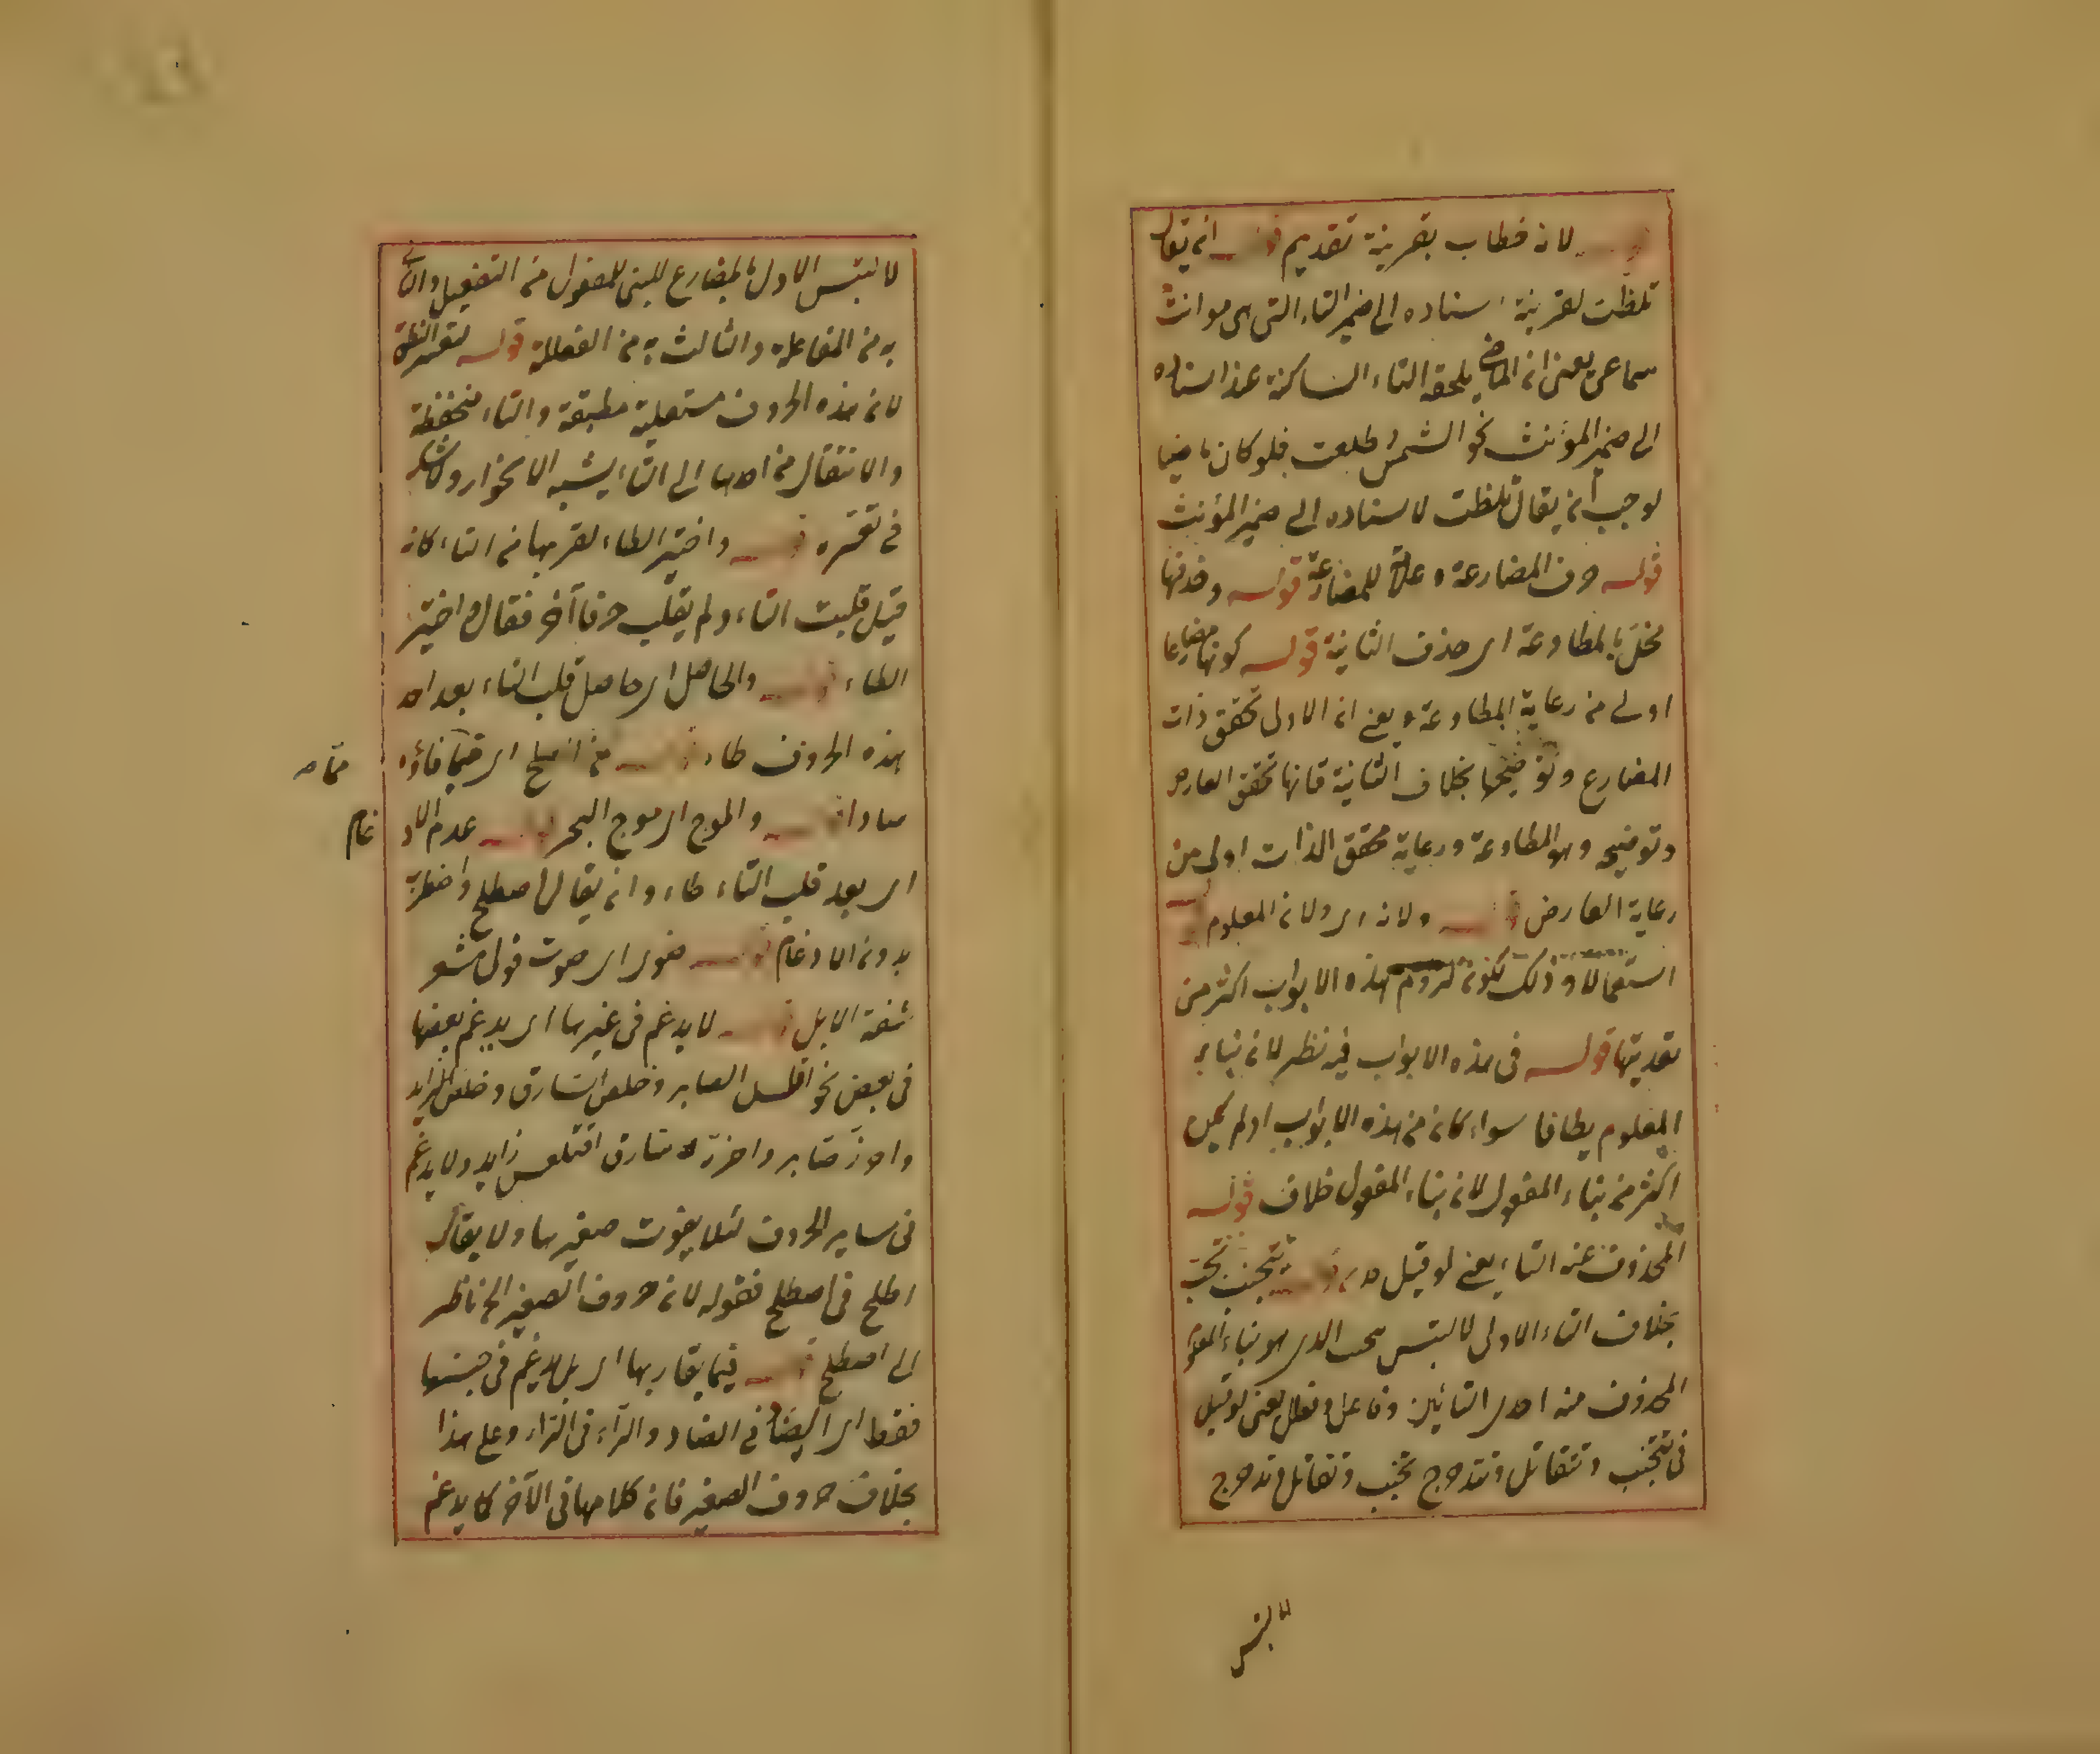 لانه خطاب بقرينة تقديم قوله ان يقال
تلظت لقرينة اسناده الى ضمير التاء التى هى مؤنث
سماعى يعنى ان الماضى يلحقه التاء الساكنة عند اسناده
الى ضمير المؤنث نحو الشمس طلعت فلو كان ماضيا
لوجب ان يقال تلظت لاسناده الى ضمير المؤنث
قوله حرف المضارعة وعلامة للمضارعة قوله وحذفها
مخل بالمطاوعة اى حذف الثانية قوله كونها مضارعا
اولى من رعاية المطاوعة ويعنى ان الاولى تحقق ذات
المضارع وتوضيحها بخلاف الثانية فانها تحقق العارض
وتوضيحه وهو المطاوعة ورعاية محقق الذات اولى من
رعاية العارض قوله ولانه اى ولان المعلوم
استعمالا وذلك لكون لزوم هذه الابواب اكثر من
تعديتها قوله فى هذه الابواب فيه نظر لان بناء
المعلوم مطلقا سواء كان من هذه الابواب او لم يكن
اكثر من بناء المفعول لان بناء المفعول خلاف قوله
المحذوف عنه التاء يعنى لو قيل قوله تتجنب تجنب
بخلاف التاء الاولى لالتبس الذى هو بناء المعلوم
المحذوف منه احدى التائين وفاعل وفعلل يعنى لو قيل
فى تتجنب وتتقاتل وتتدحرج تجنب وتقاتل وتدحرج
لالتبس
لالتبس الاول بالمضارع المبنى للمفعول من التفعيل والثانى
به من المفاعلة والثالث به من الفعللة قوله لتعسر النطق
لان هذه الحروف مستعلية مطبقة والتاء منخفظة
والانتقال من احدها الى التاء يشبه الانحدار ولا شك
فى تعسره قوله واختير الطاء لقربها من التاء كان
قيل قلبت التاء ولم يقلب حرفا آخر فقال واختير
الطاء قوله والحاصل اى حاصل قلب التاء بعد احد
هذه الحروف طاء قوله من اصلح اى فيما فاؤه
مما صـ
صادا قوله والموج اى موج البحر قوله عدم الاد
غام
اى بعد قلب التاء طاء وان يقال اصطلح واضطرب
بدون الادغام قوله ضوى اى صوت قوله مشفر
شفة الابل قوله لا يدغم فى غيرها اى يدغم بعضها
فى بعض نحو افلس الصابر وخلص السارق وخلص الزايد
واحرز صابر واحرز سارق اقتلعس زايد ولا يدغم
فى ساير الحروف لئلا يفوت صفيرها ولا يقال
اطلح فى اصطلح فقوله لان حروف الصفير الخ ناظر
الى اصطلح قوله فيما يقاربها اى بل يدغم فى جنسها
فقط اى الضاد فى الضاد والراء فى الراء وعلى هذا
بخلاف حروف الصفير فان كلا منها فى الآخر كا يدغم